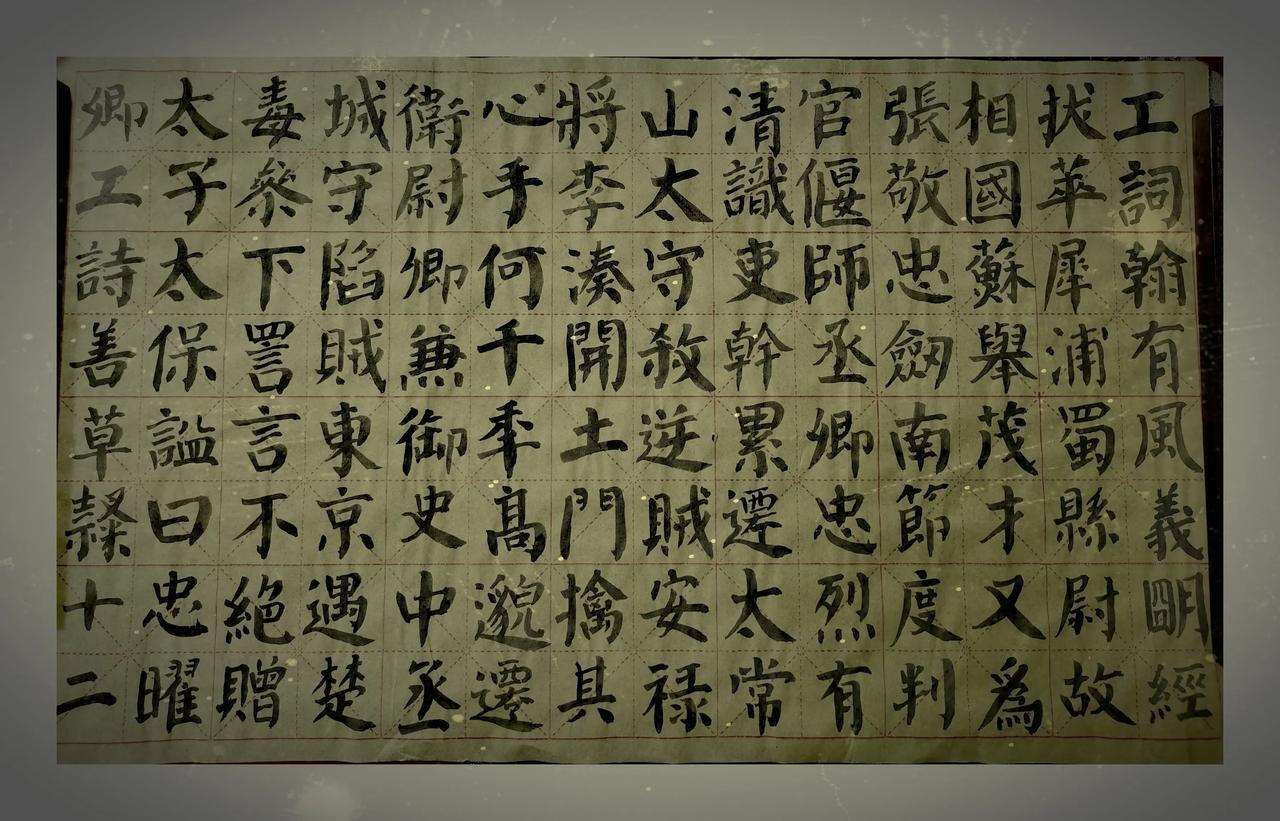 工詞翰有風義朙經
拔萃犀浦蜀縣尉故
相國蘇舉茂才又爲
張敬忠劒南節度判
官偃師丞卿忠烈有
清識吏幹累遷太常
山太守殺逆賊安禄
將李湊開土門擒其
心手何千秊髙邈遷
衛尉卿兼御史中丞
城守陷賊東京遇楚
毒參下詈言不絕贈
太子太保謚曰忠曜
卿工詩善草隸十二